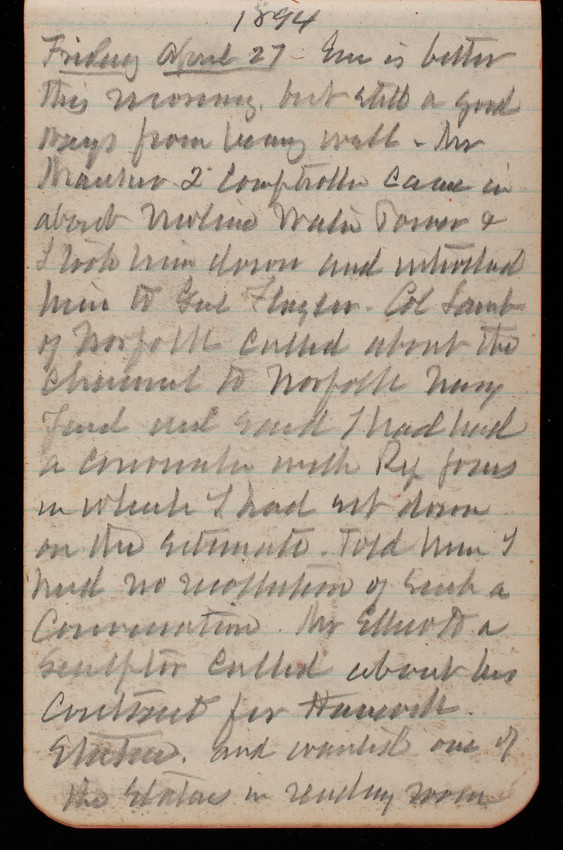 1894
Friday April 27 - Em is better
this morning, but still a good
ways from being well - Mr
Mansur 2d Comptroller came in
about Moline Water Power &
I took him down and introduced
him to Gnl Flagler. Col Lamb
of Norfolk called about the
channel to Norfolk Navy
Yard and said I had had
a conversatn with Rep
in which I had set down
on the estimate. Told him I
had no recollection of such a
Conversation. Mr Ellicott a
Sculptor called about his
Contract for Hancock
Statue. and wanted one of
the Statues in reading room